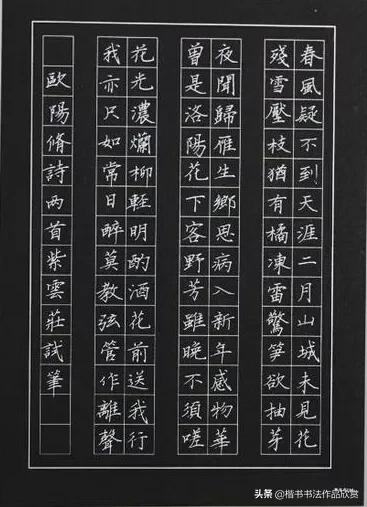 春風疑不到天涯二月山城未見花
殘雪壓枝猶有橘凍雷驚笋欲抽芽
夜聞歸雁生鄉思病入新年感物華
曾是洛陽花下客野芳雖晚不須嗟
花光濃爛柳輕明酌酒花前送我行
我亦只如常日醉莫教弦管作離聲
歐陽脩詩兩首紫雲莊試筆
头条 @楷书书法作品欣赏